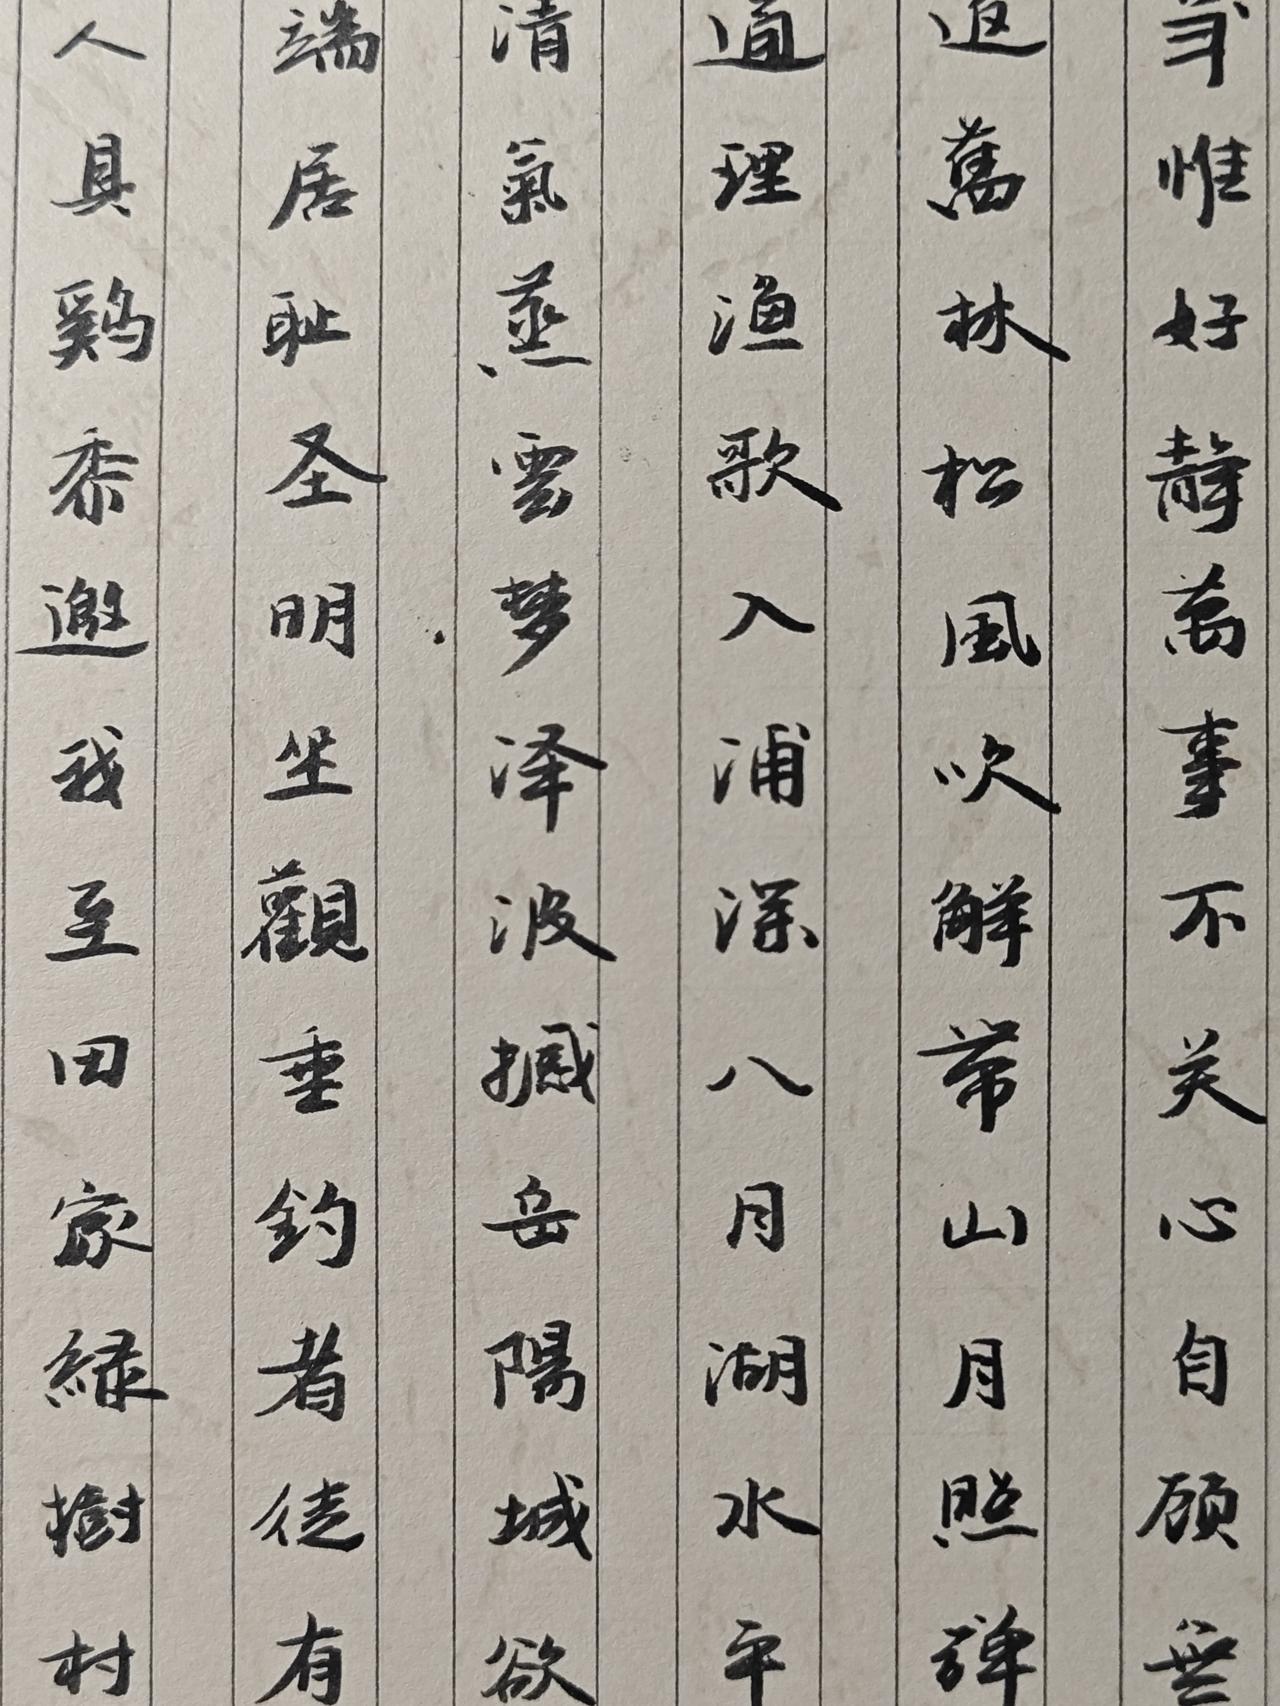 年惟好靜萬事不关心自顾無
返舊林松風吹解带山月照弹
通理渔歌入浦深八月湖水平
清氣蒸雲梦泽波撼岳陽城欲
端居耻圣明坐觀垂釣者徒有
人具鷄黍邀我至田家緑樹村